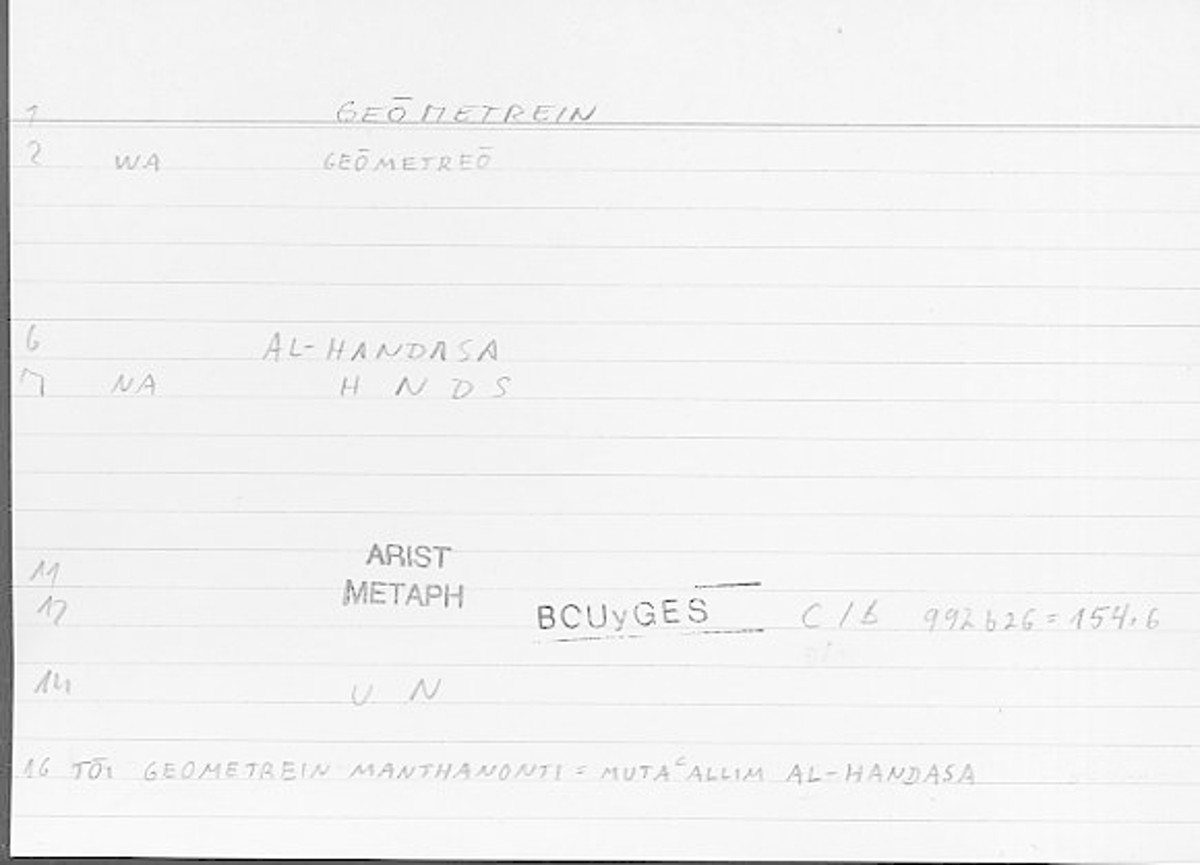 1 GEŌMETREIN
2 WA GEŌMETREŌ
6 AL-HANDASA
7 NA H N D S
11 ARIST
12 METAPH BCUyGES C/B 992b26=154.6
14 U N
16 TŌI GEOMETREIN MANTHANONTI = MUTAᶜALLIM AL-HANDASA